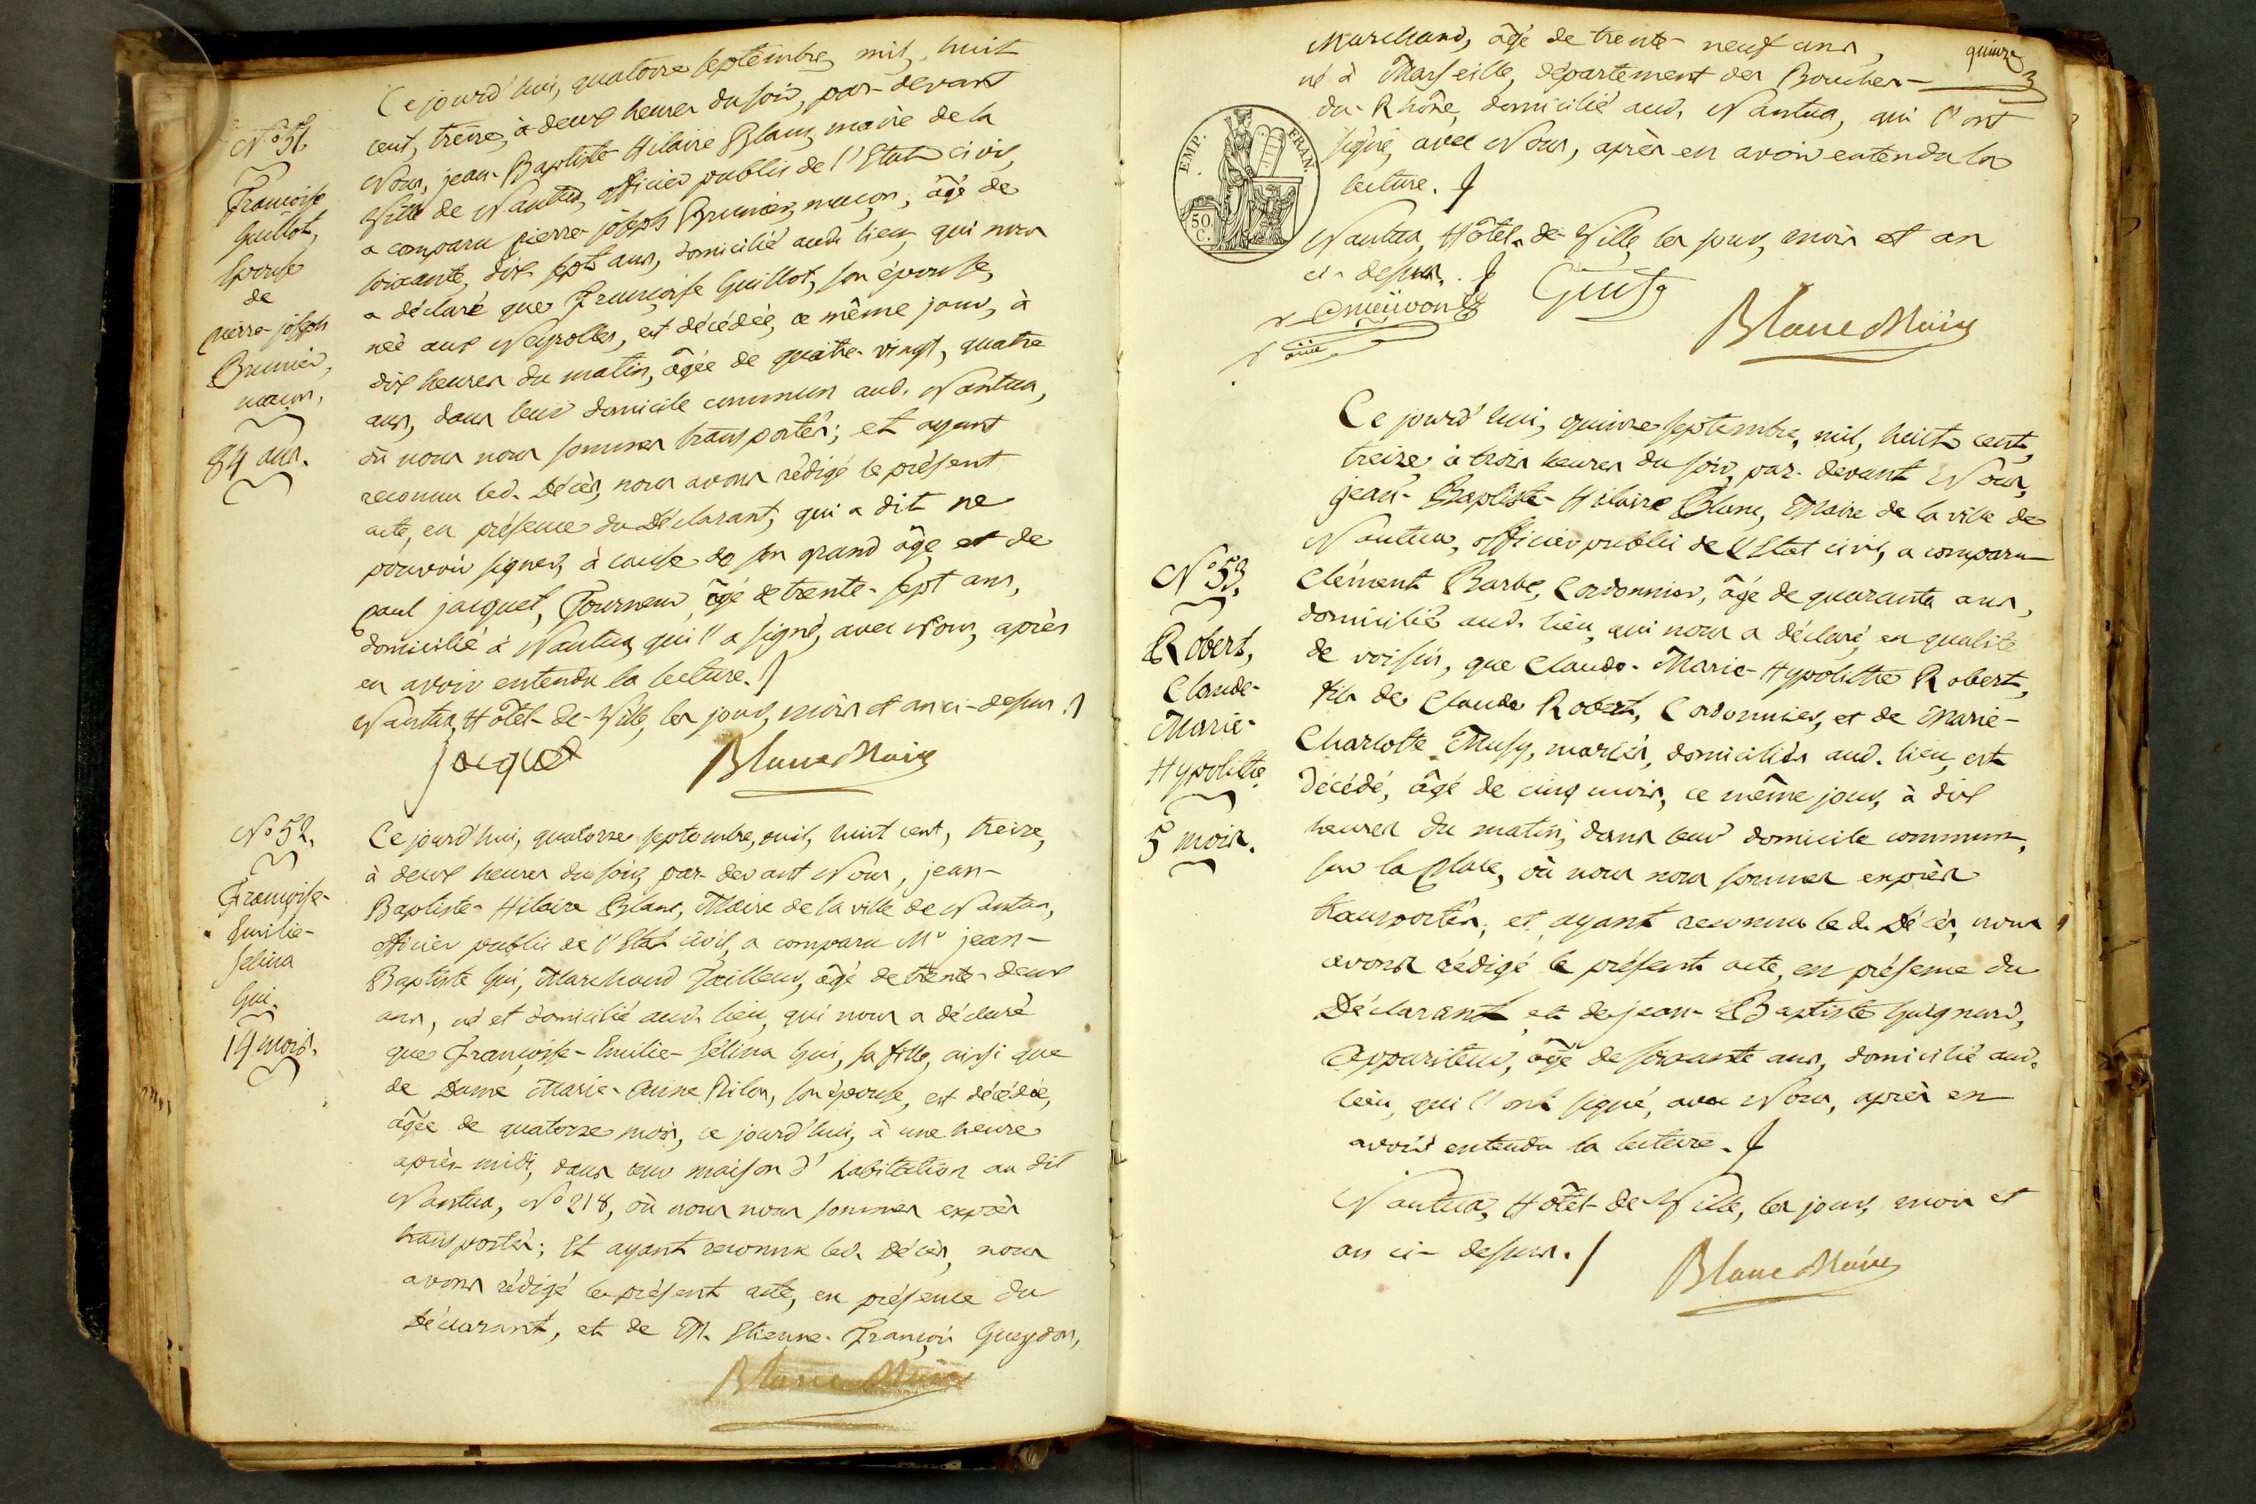 Ce jourd'hui, quatorze septembre mil, huit
cent, treize, à deux heures du soir, par-devant
Nous, jean-Baptiste Hilaire Blanc, maire de la
Ville de Nantua, officier public de l'Etat civil,
a comparu pierre-joseph Brunier, maçon, âgé de
soixante, dix sept ans, domicilié aud. lieu, qui nous
a déclaré que Françoise Guillot, son épouse,
née aux Neyrolles, est décédée, ce même jour, à
dix heures du matin, âgée de quatre-vingt, quatre
ans, dans leur domicile commun aud. Nantua,
où nous nous sommes transportés; et ayant
reconnu led. Décès, nous avons rédigé le présent
acte, en présence du Déclarant, qui a dit ne
pouvoir signer, à cause de son grand âge et de
paul jacquet, Tourneur, âgé de trente-sept ans,
domicilié à Nantua, qui l'a signé, avec Nous, après
en avoir entendu la lecture.
Nantua, Hôtel-de-Ville, les jour, mois et an ci-dessus.
N° 51.
Françoise
Guillot,
Epouse
de
pierre-joseph
Brunier,
maçon,
84 ans.
Jacquet
Blanc Maire
N° 52.
Françoise-
Emilie-
Selina
Gui.
14 mois.
Ce jourd'hui, quatorze septembre, mil, huit cent, treize,
à deux heures du soir, par-devant Nous, jean-
Baptiste-Hilaire Blanc, Maire de la ville de Nantua,
officier public de l'Etat civil, a comparu Mr jean-
Baptiste Gui, Marchand Tailleur, âgé de trente-deux
ans, né et domicilié aud. lieu, qui nous a déclaré
que Françoise-Emilie-Selina Gui, sa fille, ainsi que
de Dame Marie-Anne Pilon, son épouse, est décédée,
âgée de quatorze mois, ce jourd'hui, à une heure
après-midi, dans leur maison d'habitation au dit
Nantua, N° 218, où nous nous sommes exprès
transportés; Et ayant reconnu led. Décès, nous
avons rédigé le présent acte, en présence du
Déclarant, et de M. Etienne-François Gueydon,
Blanc Maire
quinze
Marchand, âgé de trente-neuf ans,
né à Marseille, département des Bouches-
du-Rhône, domicilié aud. Nantua, qui l'ont
signé, avec Nous, après en avoir entendu la
lecture.
Nantua, Hôtel-de-Ville, les jour, mois et an
ci-dessus.
EMP. FRAN.
50 C.
Blanc Maire
Ce jourd'hui, quinze septembre, mil, huit cent,
treize, à trois heures du soir, par-devant Nous,
jean-Baptiste-Hilaire Blanc, Maire de la ville de
Nantua, officier public de l'Etat civil, a comparu
Clément Barbe, Cordonnier, âgé de quarante ans,
domicilié aud. lieu, qui nous a déclaré, en qualité
de voisin, que Claude-Marie-Hypolitte Robert,
fils de Claude Robert, Cordonnier, et de Marie-
Charlotte Musy, mariés, domiciliés aud. lieu, est
Décédé, âgé de cinq mois, ce même jour, à dix
heures du matin, dans leur domicile commun,
sur la Place, où nous nous sommes exprès
transportés; et ayant reconnu led. Décès, nous
avons rédigé le présent acte, en présence du
Déclarant et de jean-Baptiste Guignard,
Appariteur, âgé de soixante ans, domicilié aud.
lieu, qui l'ont signé, avec Nous, après en
avoir entendu la lecture.
Nantua, Hôtel-de-Ville, les jour, mois et
an ci-dessus.
N° 53.
Robert,
Claude-
Marie-
Hypolitte
5 mois.
Blanc Maire